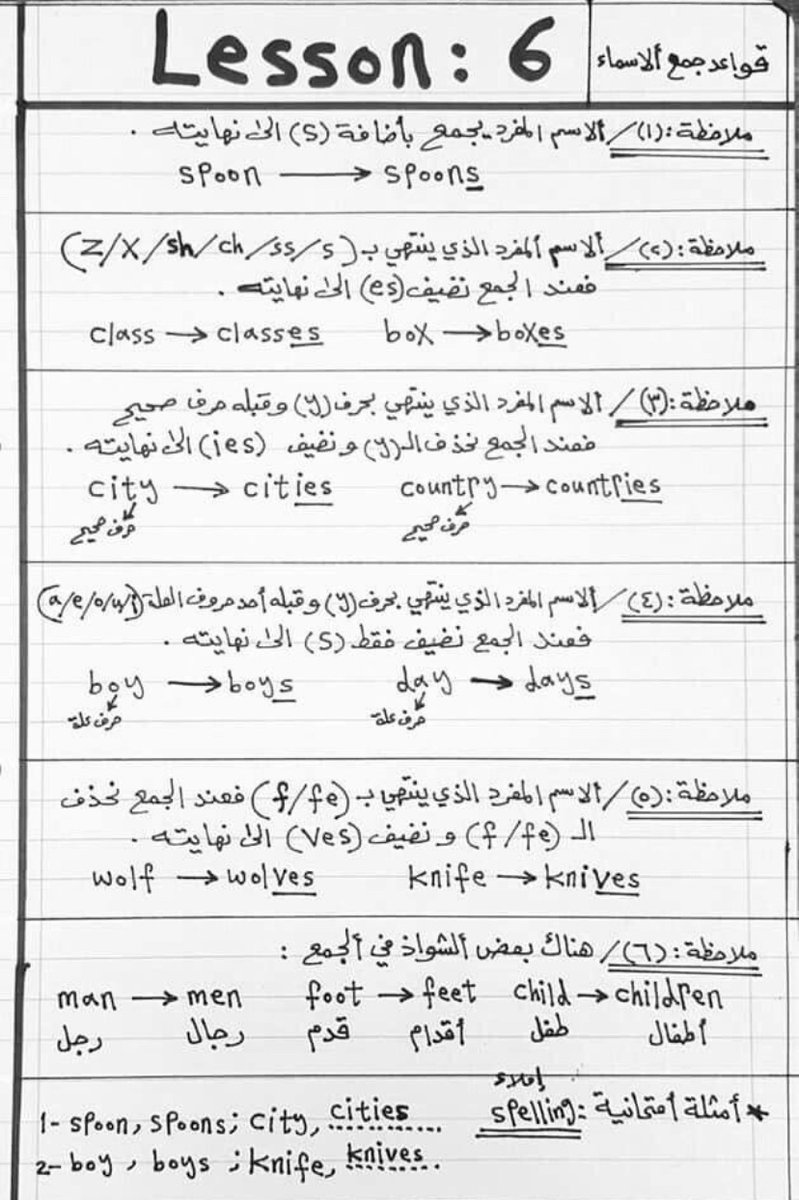 Lesson: 6
قواعد جمع ألاسماء
ملاحظة: (١)/ ألاسم المفرد يجمع بأضافة (s) الى نهايته .
spoon → spoons
ملاحظة: (٢)/ ألاسم ألمفرد الذي ينتهي بـ (z/x/sh/ch/ss/s)
فعند الجمع نضيف (es) الى نهايته .
class → classes box → boxes
ملاحظة: (٣)/ ألاسم المفرد الذي ينتهي بحرف (y) وقبله حرف صحيح
فعند الجمع نحذف الـ (y) و نضيف (ies) الى نهايته .
city → cities country → countries
حرف صحيح حرف صحيح
ملاحظة: (٤)/ ألاسم المفرد الذي ينتهي بحرف (y) وقبله أحد حروف العلة (a/e/o/u/i)
فعند الجمع نضيف فقط (s) الى نهايته .
boy → boys day → days
حرف علة حرف علة
ملاحظة: (٥)/ ألاسم المفرد الذي ينتهي بـ (f/fe) فعند الجمع نحذف
الـ (f/fe) و نضيف (ves) الى نهايته .
wolf → wolves knife → knives
ملاحظة: (٦)/ هناك بعض ألشواذ في ألجمع :
man → men foot → feet child → children
رجل رجال قدم أقدام طفل أطفال
إملاء
* أمثلة أمتحانية spelling:
1- spoon, spoons; city, cities
2- boy, boys; knife, knives